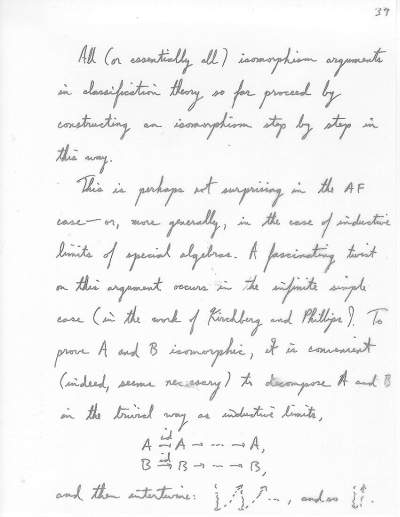 39
All (or essentially all) isomorphism arguments
in classification theory so far proceed by
constructing an isomorphism step by step in
this way.
This is perhaps not surprising in the AF
case — or, more generally, in the case of inductive
limits of special algebras. A fascinating twist
on this argument occurs in the infinite simple
case (in the work of Kirchberg and Phillips). To
prove A and B isomorphic, it is convenient
(indeed, seems necessary) to decompose A and B
in the trivial way as inductive limits,
A id→ A → ··· → A,
B id→ B → ··· → B,
and then intertwine: ..., and so